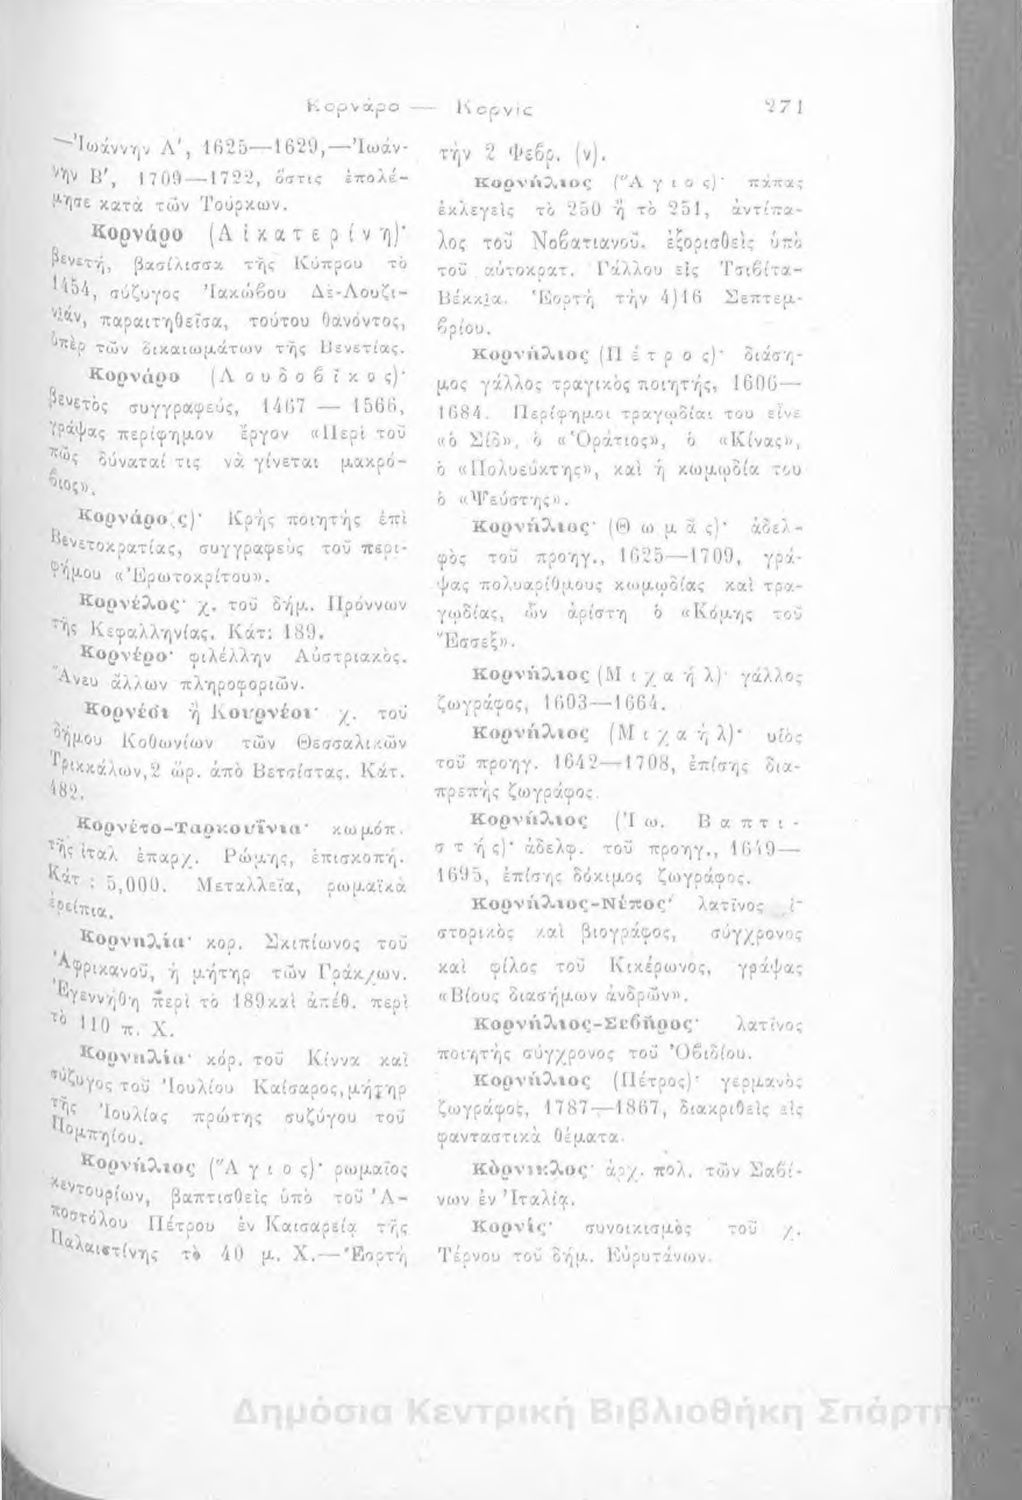 Κορνάρο — Κορνίς 271
—Ἰωάννην Α΄, 1625—1629,—Ἰωάν-
νην Β΄, 1709—1722, ὅστις ἐπολέ-
μησε κατὰ τῶν Τούρκων.
Κορνάρο (Αἰκατερίνη)·
βενετή, βασίλισσα τῆς Κύπρου τὸ
1454, σύζυγος Ἰακώβου Δὲ-Λουζι-
νιάν, παραιτηθεῖσα, τούτου θανόντος,
ὑπὲρ τῶν δικαιωμάτων τῆς Βενετίας.
Κορνάρο (Λουδοβῖκος)·
βενετὸς συγγραφεύς, 1467 — 1566,
γράψας περίφημον ἔργον «Περὶ τοῦ
πῶς δύναταί τις νὰ γίνεται μακρό-
βιος».
Κορνάρο(ς)· Κρὴς ποιητὴς ἐπὶ
Βενετοκρατίας, συγγραφεὺς τοῦ περι-
φήμου «Ἐρωτοκρίτου».
Κορνέλος· χ. τοῦ δήμ. Πρόννων
τῆς Κεφαλληνίας. Κάτ: 189.
Κορνέρο· φιλέλλην Αὐστριακός.
Ἄνευ ἄλλων πληροφοριῶν.
Κορνέσι ἢ Κουρνέσι· χ. τοῦ
δήμου Κοθωνίων τῶν Θεσσαλικῶν
Τρικκάλων, 2 ὡρ. ἀπὸ Βετσίστας. Κάτ.
482.
Κορνέτο-Ταρκουΐνια· κωμόπ.
τῆς ἰταλ ἐπαρχ. Ῥώμης, ἐπισκοπή.
Κάτ : 5,000. Μεταλλεῖα, ρωμαϊκὰ
ἐρείπια.
Κορνηλία· κορ. Σκιπίωνος τοῦ
Ἀφρικανοῦ, ἡ μήτηρ τῶν Γράκχων.
Ἐγεννήθη περὶ τὸ 189καὶ ἀπέθ. περὶ
τὸ 110 π. Χ.
Κορνηλία· κόρ. τοῦ Κίννα καὶ
σύζυγος τοῦ Ἰουλίου Καίσαρος, μήτηρ
τῆς Ἰουλίας πρώτης συζύγου τοῦ
Πομπηίου.
Κορνήλιος (Ἅγιος)· ρωμαῖος
κεντουρίων, βαπτισθεὶς ὑπὸ τοῦ Ἀ-
ποστόλου Πέτρου ἐν Καισαρείᾳ τῆς
Παλαιστίνης τὸ 40 μ. Χ.—Ἑορτὴ
τὴν 2 Φεβρ. (ν).
Κορνήλιος (Ἅγιος)· πάπας
ἐκλεγεὶς τὸ 250 ἢ τὸ 251, ἀντίπα-
λος τοῦ Νοβατιανοῦ. ἐξορισθεὶς ὑπὸ
τοῦ αὐτοκρατ. Γάλλου εἰς Τσιβίτα-
Βέκκια. Ἑορτὴ τὴν 4)16 Σεπτεμ-
βρίου.
Κορνήλιος (Πέτρος)· διάση-
μος γάλλος τραγικὸς ποιητής, 1606—
1684. Περίφημοι τραγῳδίαι του εἶνε
«ὁ Σίδ», ὁ «Ὁράτιος», ὁ «Κίνας»,
ὁ «Πολυεύκτης», καὶ ἡ κωμῳδία του
ὁ «Ψεύστης».
Κορνήλιος· (Θωμᾶς)· ἀδελ-
φὸς τοῦ προηγ., 1625—1709, γρά-
ψας πολυαρίθμους κωμῳδίας καὶ τρα-
γῳδίας, ὧν ἀρίστη ὁ «Κόμης τοῦ
Ἔσσεξ».
Κορνήλιος (Μιχαήλ)· γάλλος
ζωγράφος, 1603—1664.
Κορνήλιος (Μιχαήλ)· υἱὸς
τοῦ προηγ. 1642—1708, ἐπίσης δια-
πρεπὴς ζωγράφος.
Κορνήλιος (Ἰω. Βαπτι-
στής)· ἀδελφ. τοῦ προηγ., 1649—
1695, ἐπίσης δόκιμος ζωγράφος.
Κορνήλιος-Νέπος· λατῖνος ἱ-
στορικὸς καὶ βιογράφος, σύγχρονος
καὶ φίλος τοῦ Κικέρωνος, γράψας
«Βίους διασήμων ἀνδρῶν».
Κορνήλιος-Σεβῆρος· λατῖνος
ποιητὴς σύγχρονος τοῦ Ὀβιδίου.
Κορνήλιος (Πέτρος)· γερμανὸς
ζωγράφος, 1787—1867, διακριθεὶς εἰς
φανταστικὰ θέματα.
Κόρνικλος· ἀρχ. πολ. τῶν Σαβί-
νων ἐν Ἰταλίᾳ.
Κορνίς· συνοικισμὸς τοῦ χ.
Τέρνου τοῦ δήμ. Εὐρυτάνων.
Δημόσια Κεντρική Βιβλιοθήκη Σπάρτη